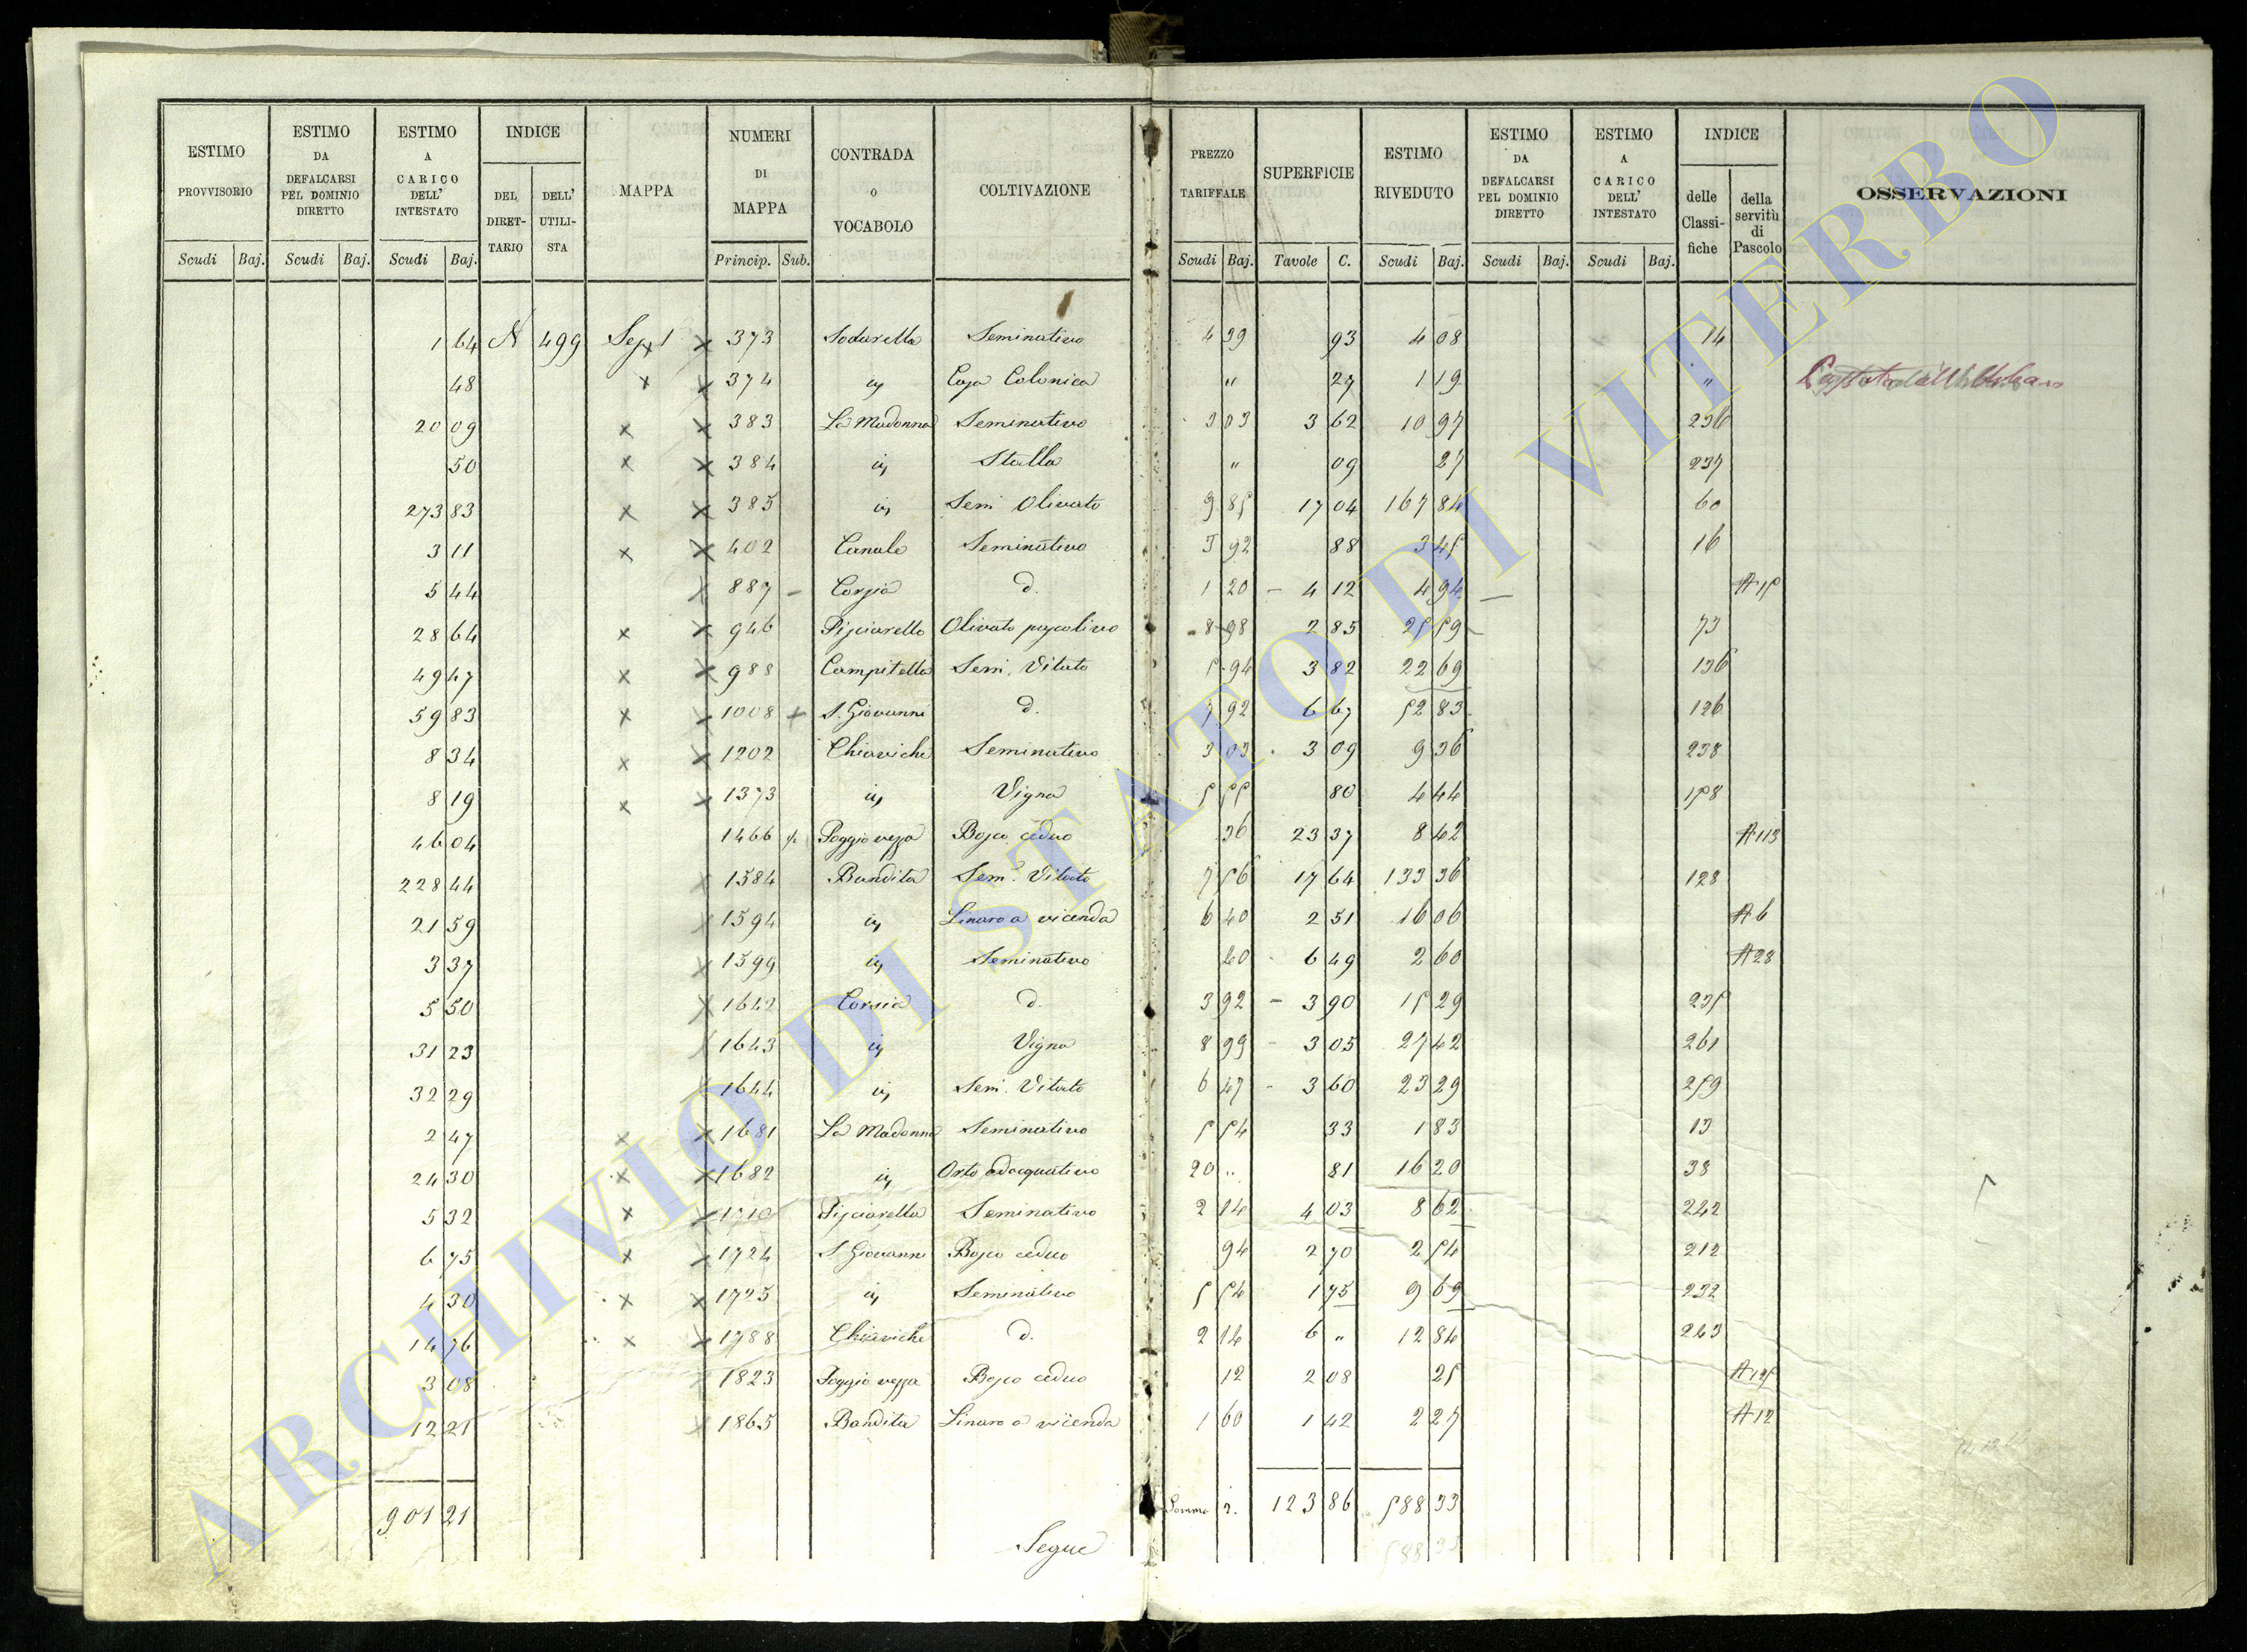 ESTIMO PROVVISORIO | ESTIMO DA DEFALCARSI PEL DOMINIO DIRETTO | ESTIMO A CARICO DELL' INTESTATO | INDICE | MAPPA | NUMERI DI MAPPA | CONTRADA O VOCABOLO | COLTIVAZIONE | PREZZO TARIFFALE | SUPERFICIE | ESTIMO RIVEDUTO | ESTIMO DA DEFALCARSI PEL DOMINIO DIRETTO | ESTIMO A CARICO DELL' INTESTATO | INDICE | OSSERVAZIONI
DEL DIRETTARIO | DELL' UTILISTA | delle Classifiche | della servitù di Pascolo
Scudi | Baj. | Scudi | Baj. | Scudi | Baj. | Princip. | Sub. | Scudi | Baj. | Tavole | C. | Scudi | Baj. | Scudi | Baj. | Scudi | Baj.
1 64 | 499 | Sez 1 | 373 | Sodarella | Seminativo | 4 39 | 93 | 4 08 | 14
48 | 374 | ivi | Casa Colonica | " | 27 | 1 19 | "
20 09 | 383 | La Madonna | Seminativo | 3 03 | 3 62 | 10 97 | 236
50 | 384 | ivi | Stalla | " | 09 | 27 | 237
273 83 | 385 | ivi | Semi Olivato | 9 85 | 17 04 | 167 84 | 60
3 11 | 402 | Canale | Seminativo | 3 92 | 88 | 3 45 | 16
5 44 | 887 | Corsia | d. | 1 20 | 4 12 | 4 94 | A 15
28 64 | 946 | Pisciarello | Olivato pascolivo | 8 98 | 2 85 | 25 59 | 73
49 47 | 988 | Campitella | Sem. Vitato | 5 94 | 3 82 | 22 69 | 136
59 83 | 1008 | S. Giovanni | d. | 7 92 | 6 67 | 52 83 | 126
8 34 | 1202 | Chiaviche | Seminativo | 3 03 | 3 09 | 9 36 | 238
8 19 | 1373 | ivi | Vigna | 5 55 | 80 | 4 44 | 158
46 04 | 1466 | Poggio vezza | Bosco ceduo | 36 | 23 37 | 8 42 | A 113
228 44 | 1584 | Bandita | Sem. Vitato | 7 56 | 17 64 | 133 36 | 128
21 59 | 1594 | ivi | Linaro a vicenda | 6 40 | 2 51 | 16 06 | A 6
3 37 | 1599 | ivi | Seminativo | 40 | 6 49 | 2 60 | A 28
5 50 | 1642 | Corsia | d. | 3 92 | 3 90 | 15 29 | 235
31 23 | 1643 | ivi | Vigna | 8 99 | 3 05 | 27 42 | 261
32 29 | 1644 | ivi | Sem. Vitato | 6 47 | 3 60 | 23 29 | 259
2 47 | 1681 | La Madonna | Seminativo | 5 54 | 33 | 1 83 | 13
24 30 | 1682 | ivi | Orto adacquativo | 20 " | 81 | 16 20 | 38
5 32 | 1710 | Pisciarella | Seminativo | 2 14 | 4 03 | 8 62 | 242
6 75 | 1724 | S. Giovanni | Bosco ceduo | 94 | 2 70 | 2 54 | 212
4 30 | 1725 | ivi | Seminativo | 5 54 | 1 75 | 9 69 | 232
14 76 | 1788 | Chiaviche | d. | 2 14 | 6 " | 12 84 | 243
3 08 | 1823 | Poggio vezza | Bosco ceduo | 12 | 2 08 | 25 | A 125
12 21 | 1865 | Bandita | Linaro a vicenda | 1 60 | 1 42 | 2 27 | A 12
901 21 | Somma | 123 86 | 588 33
Segue | 588 33
ARCHIVIO DI STATO DI VITERBO